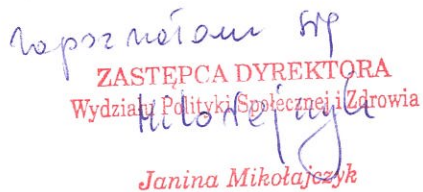 zapoznałam się
ZASTĘPCA DYREKTORA
Wydziału Polityki Społecznej i Zdrowia
Janina Mikołajczyk